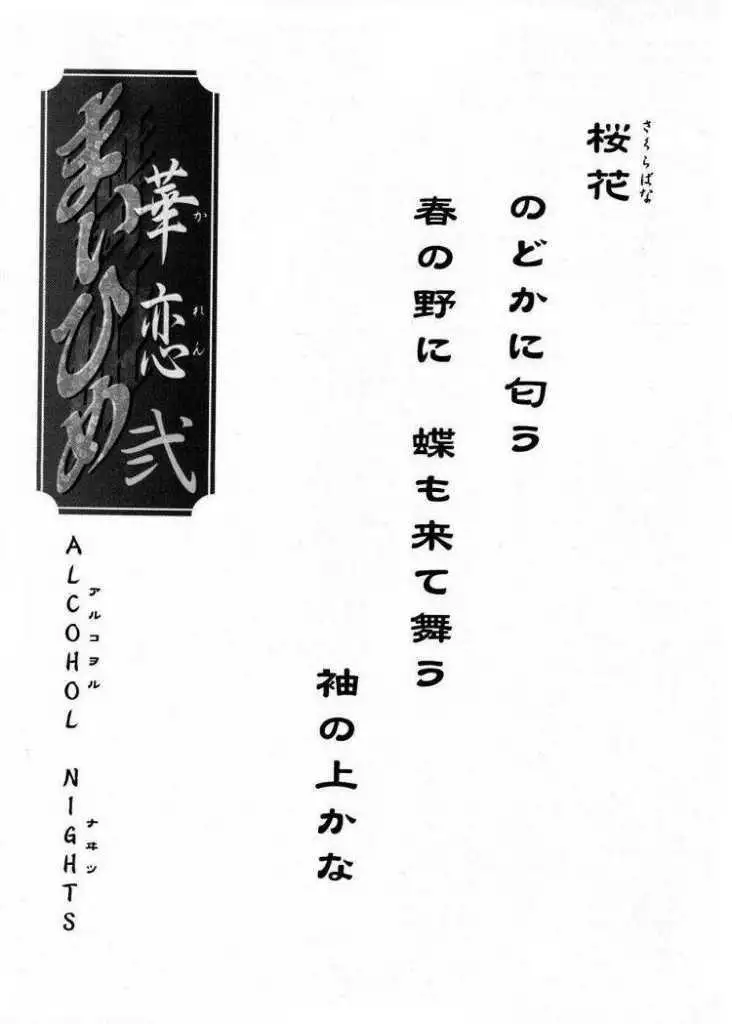 桜花
さくらばな
のどかに匂う
春の野に 蝶も来て舞う
袖の上かな
まいひめ
華恋 弐
かれん
ALCOHOL NIGHTS
アルコヲル ナヰツ